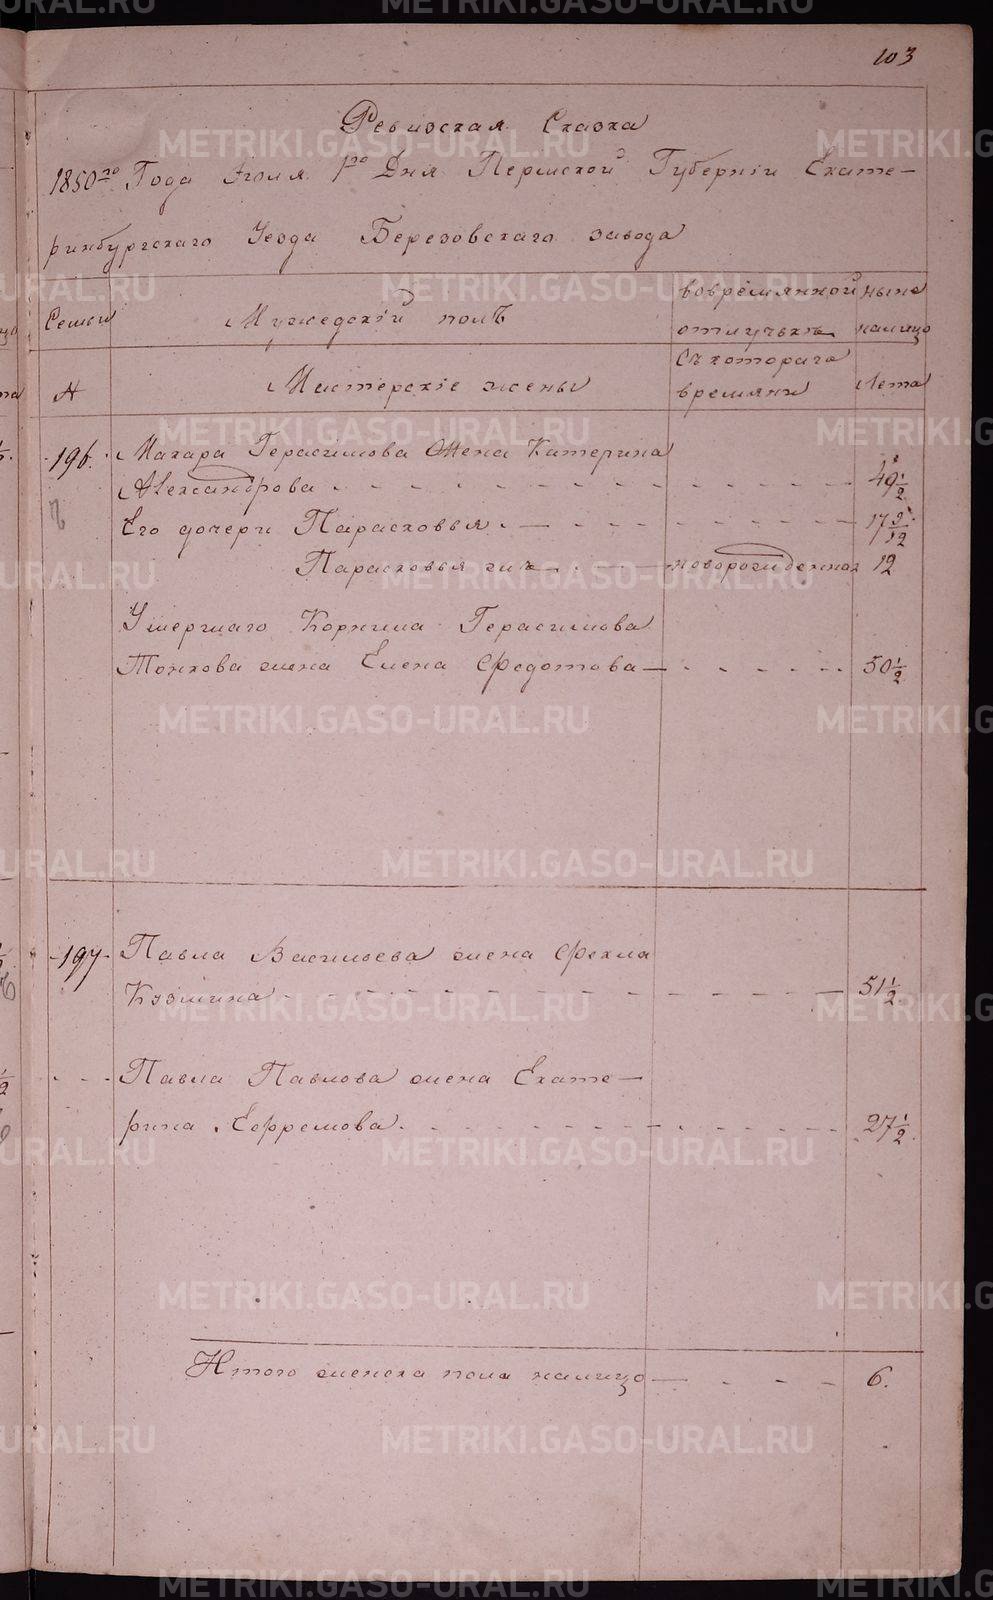 103
Ревизская Сказка
1850го Года Июля 1го Дня Пермской Губерніи Екате-
ринбургскаго Уезда Березовскаго завода
Семьи
Мужескій полъ
вовремянной
отлучьке
ныне
налицо
№
Мастерскіе жены
Съ котораго
времяни
Лета
196.
Макара Герасимова Жена Катерина
Александрова - - - - 49 1/2
Его дочери Парасковья - - - 17
Парасковья - новорожденная 12
Умершаго Корнила Герасимова
Тонкова жена Елена Федотова - - - 50 1/2
197
Павла Васильева жена Фекла
Козмина - - - - 51 1/2
Павла Павлова жена Екате-
рина Ефремова - - - - 27 1/2
Итого женска пола налицо - - - - 6.
METRIKI.GASO-URAL.RU